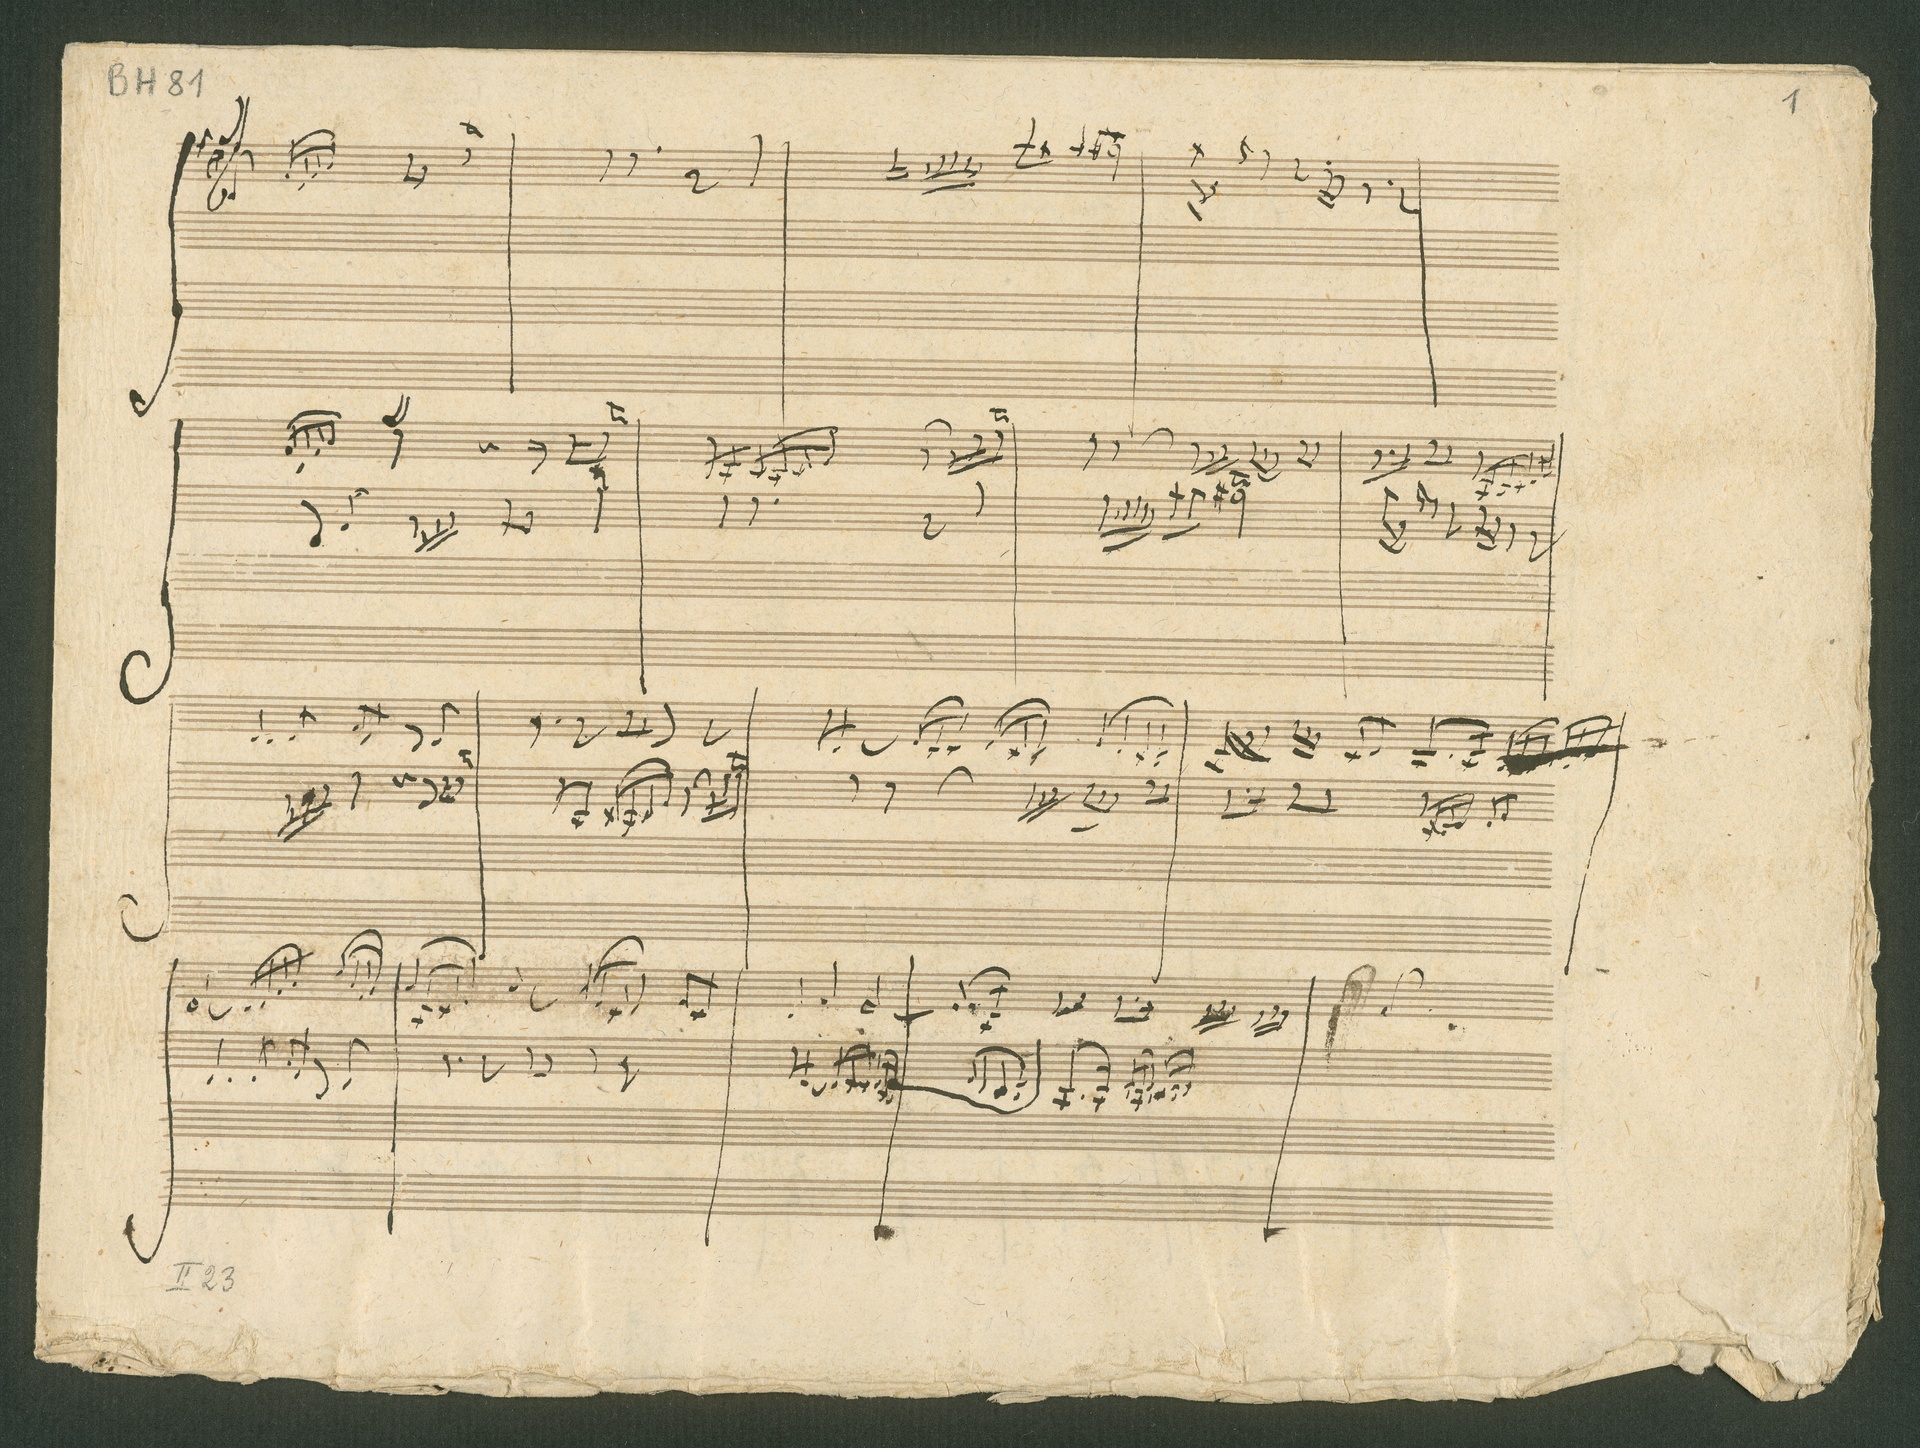 BH 81
1
II 23